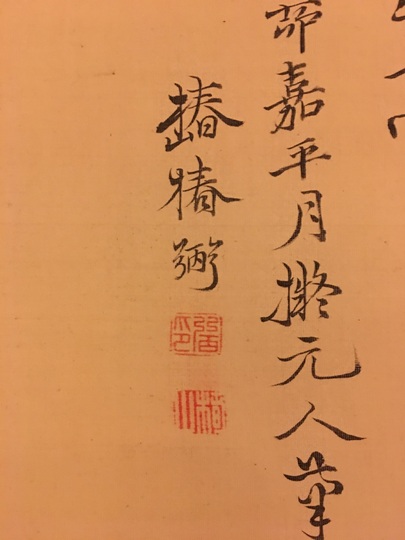 嘉平月擬元人筆
椿山椿弼